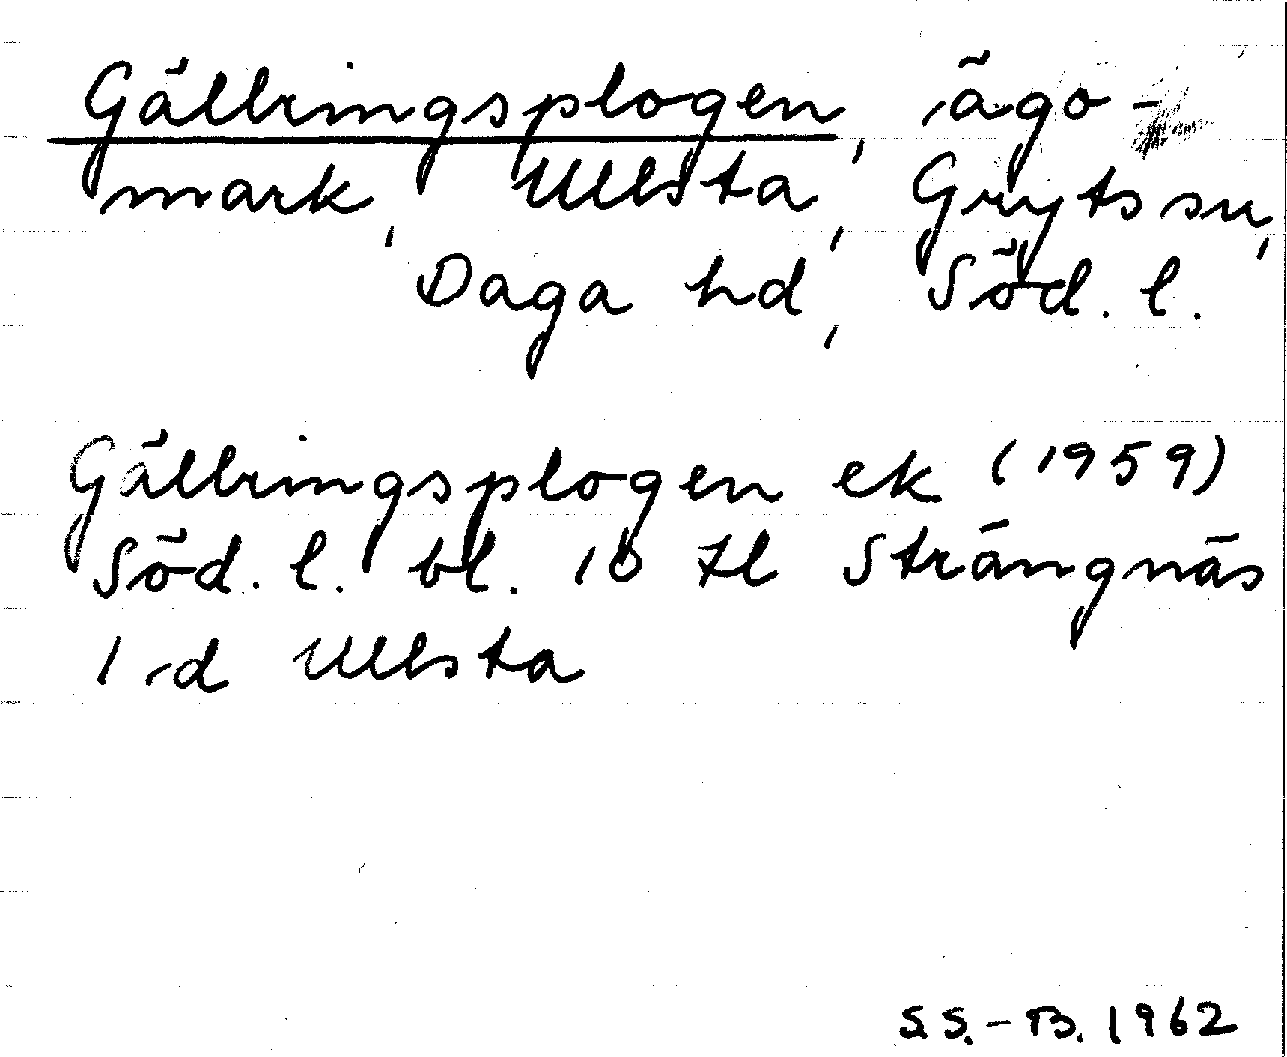 Gällringsplogen, ägo-
mark, Ullsta, Gryts sn,
Daga hd, Söd. l.
Gällringsplogen ek (1959)
Söd. l. bl. 10 tl Strängnäs
1 d Ullsta
S.S.-B. 1962